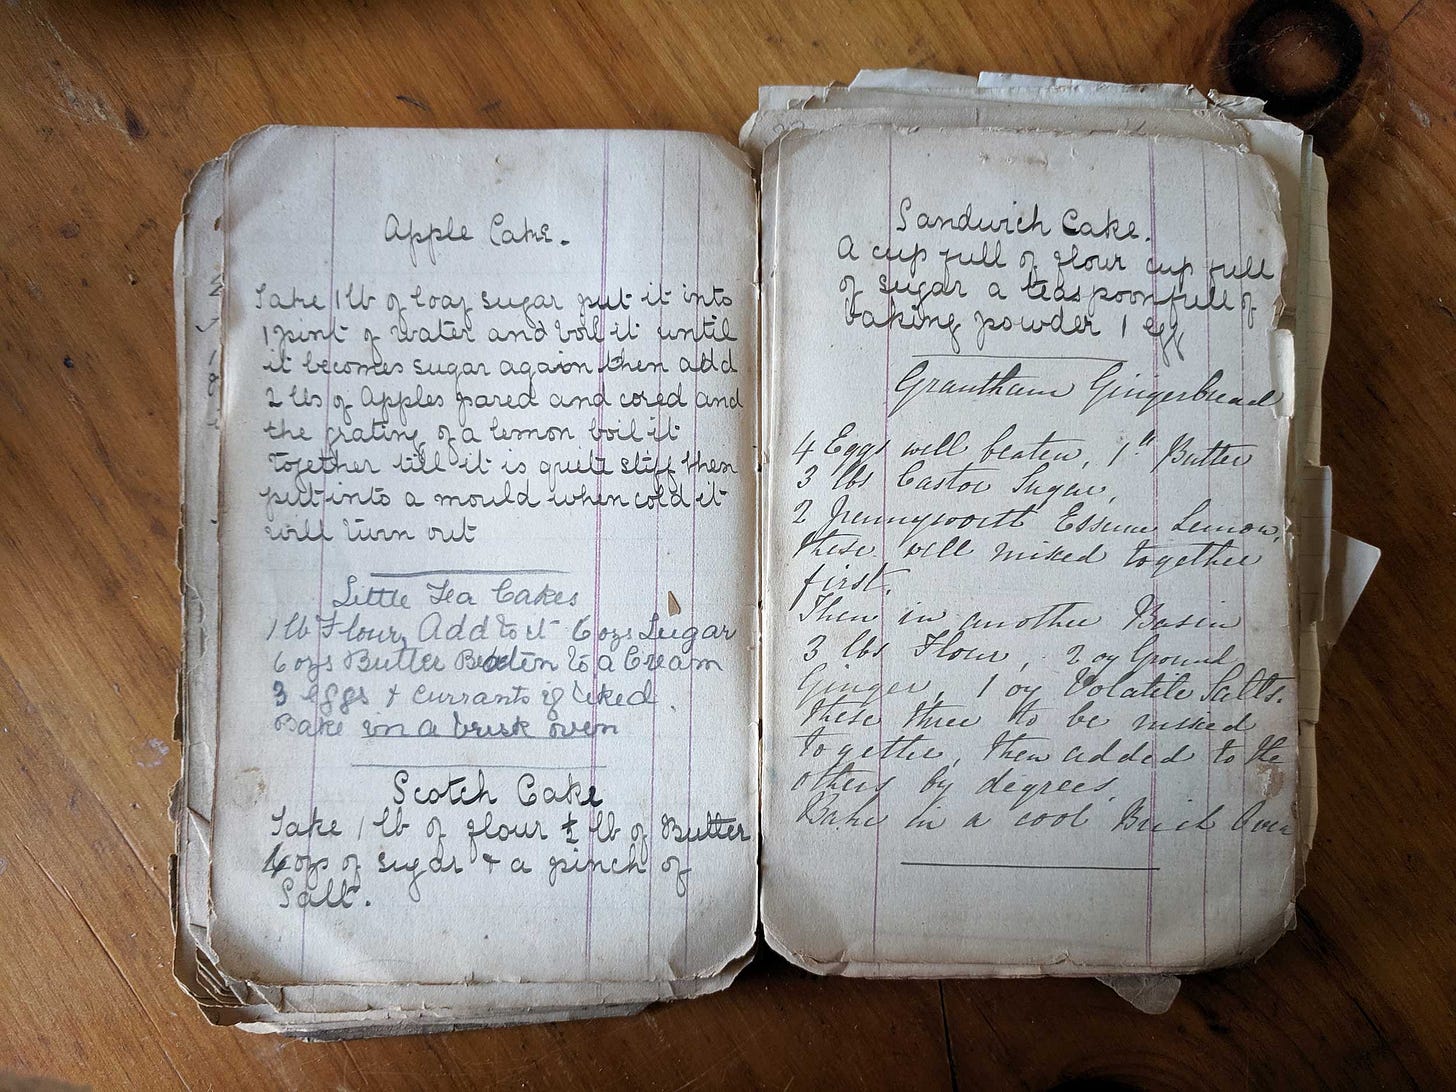 Apple Cake.
Take 1 lb of loaf sugar put it into
1 pint of water and boil it until
it becomes sugar again then add
2 lbs of Apples pared and cored and
the grating of a lemon boil it
together till it is quite stiff then
put into a mould when cold it
will turn out
Little Tea Cakes
1 lb Flour, Add to it 6 ozs Sugar
6 ozs Butter Beaten to a Cream
3 eggs & currants if liked.
Bake in a brisk oven
Scotch Cake
Take 1 lb of flour ½ lb of Butter
4 ozs of sugar & a pinch of
Salt.
Sandwich Cake.
A cup full of flour cup full
of sugar a teaspoonfull of
baking powder 1 egg
Grantham Gingerbread
4 Eggs well beaten, 1 lb Butter
3 lbs Castor Sugar,
2 pennyworth Essence Lemon,
these well mixed together
first.
Then in another Basin
3 lbs Flour, 2 oz Ground
Ginger, 1 oz Volatile Salts.
these three to be mixed
together, then added to the
others by degrees.
Bake in a cool Brick Oven